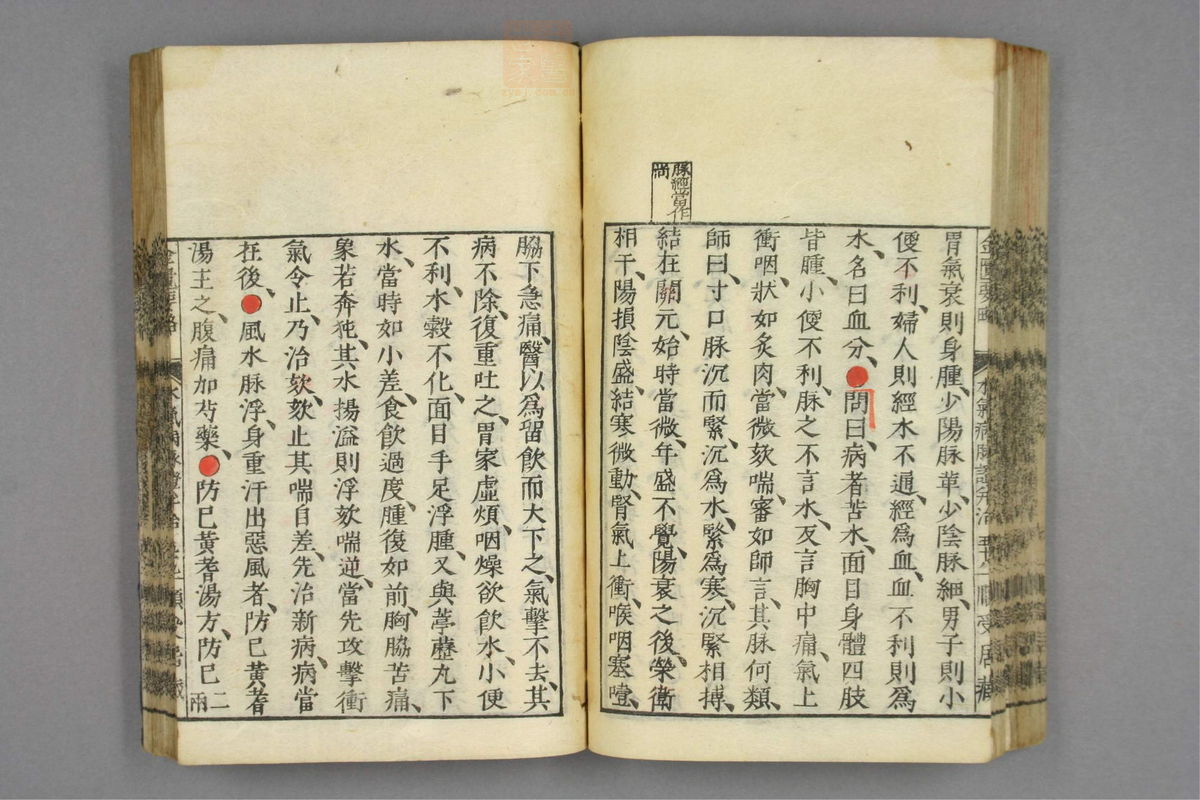 脉經當作
當
胃氣衰則身腫、少陽脉革、少陰脉細、男子則小
便不利、婦人則經水不通、經爲血、血不利則爲
水、名曰血分、●問曰、病者苦水、面目身體四肢
皆腫、小便不利、脉之不言水、反言胸中痛、氣上
衝咽、狀如炙肉、當微欬喘、審如師言、其脉何類、
師曰、寸口脉沉而緊、沉爲水、緊爲寒、沉緊相搏、
結在關元、始時當微、年盛不覺、陽衰之後、榮衛
相干、陽損陰盛、結寒微動、腎氣上衝、喉咽塞噎、
脇下急痛、醫以爲留飲而大下之、氣擊不去、其
病不除、復重吐之、胃家虛煩、咽燥欲飲水、小便
不利、水穀不化、面目手足浮腫、又與葶藶丸下
水、當時如小差、食飲過度、腫復如前、胸脇苦痛、
象若奔㹠、其水揚溢則浮欬喘逆、當先攻擊衝
氣令止、乃治欬、欬止其喘自差、先治新病、病當
在後、●風水脉浮、身重汗出惡風者、防已黃耆
湯主之、腹痛加芍藥、●防已黃耆湯方、防已二兩